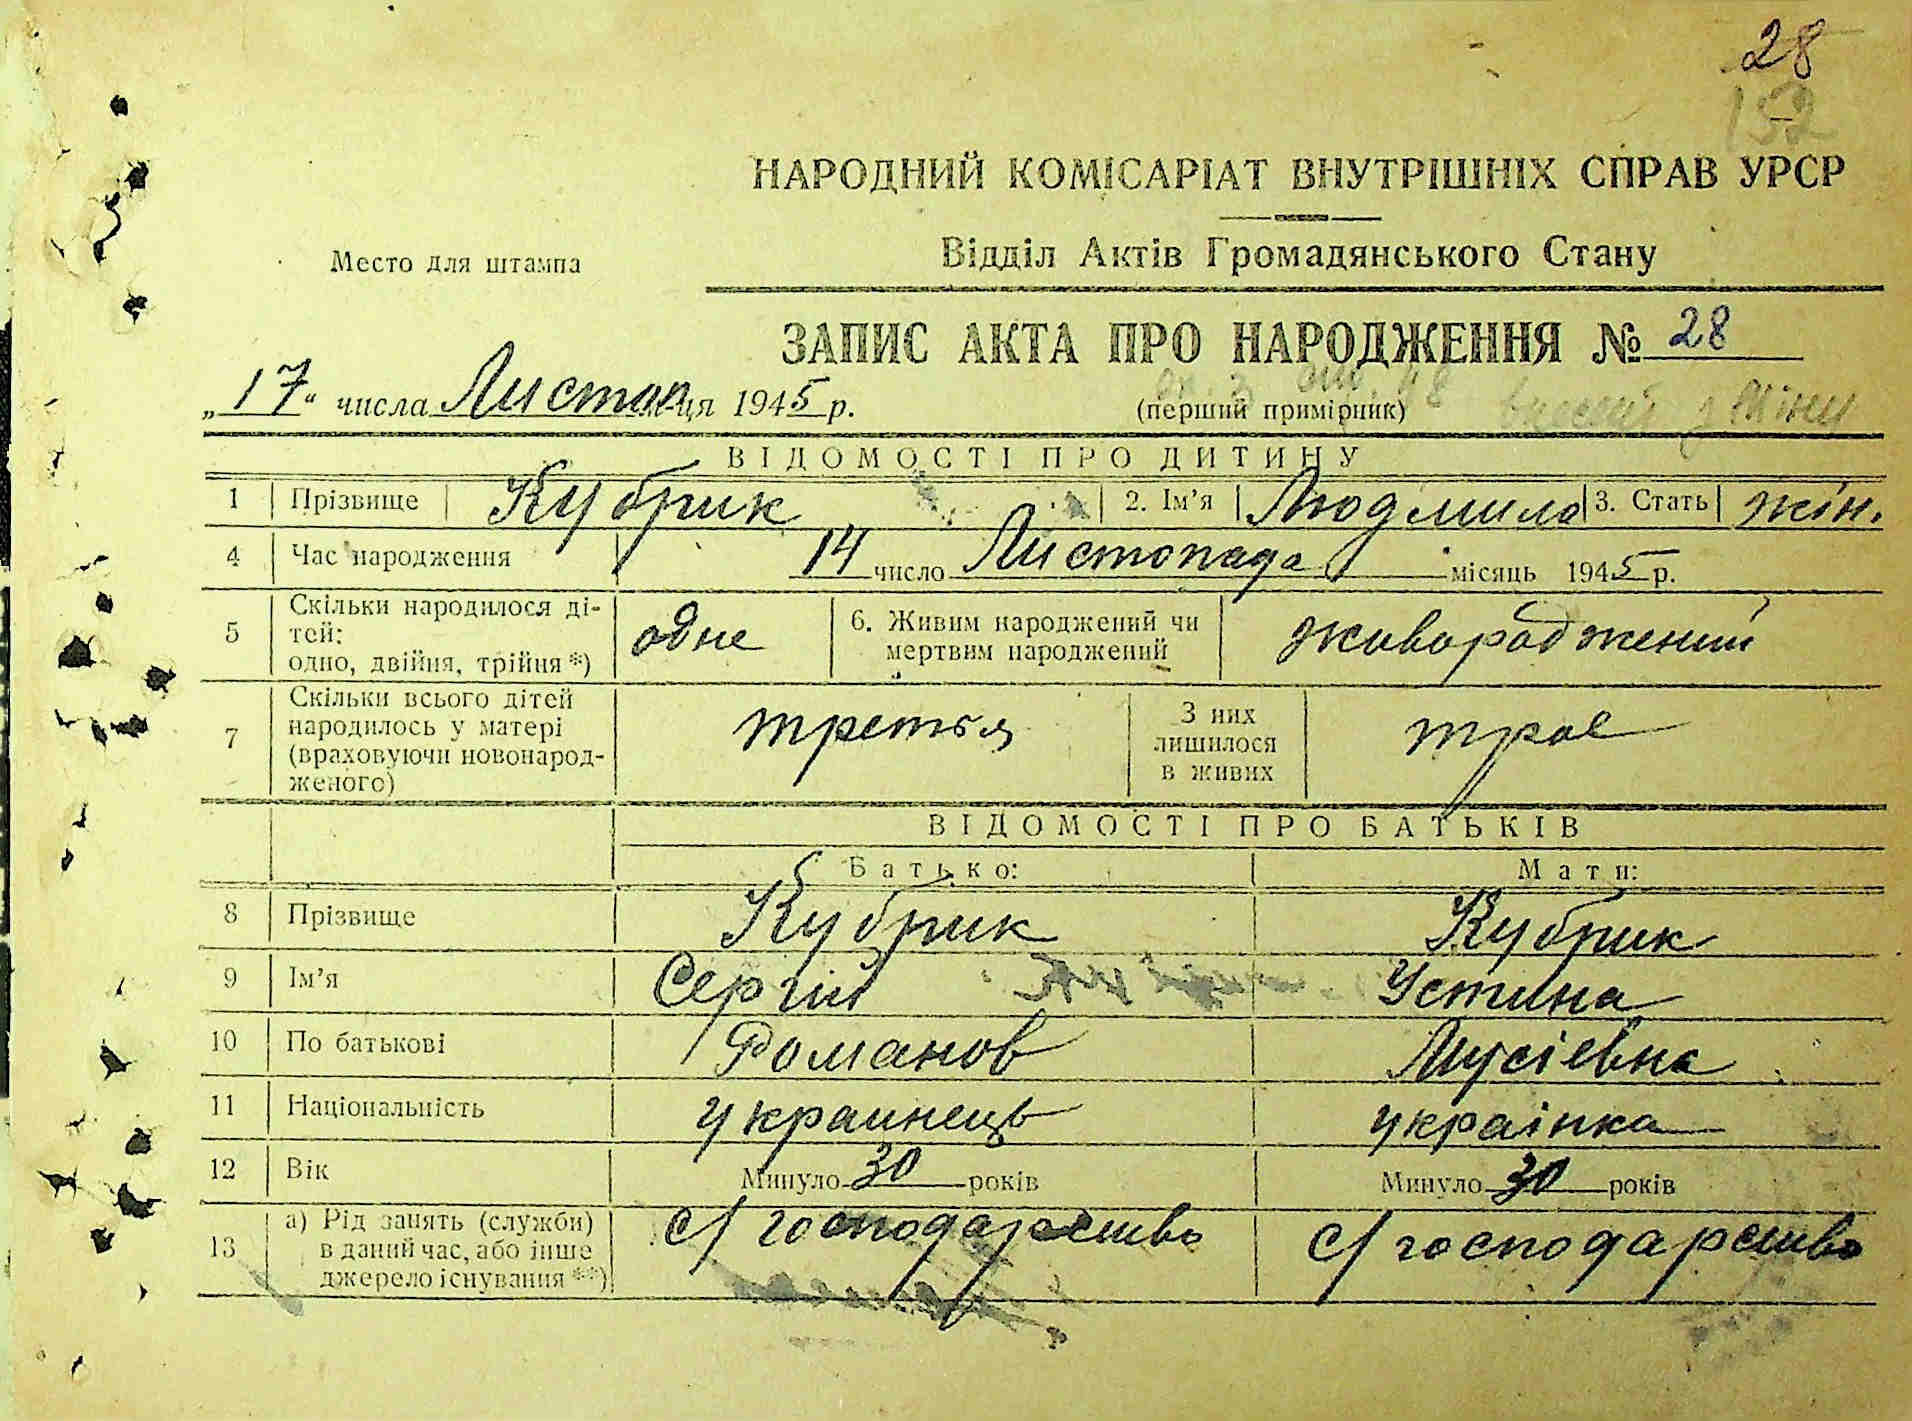 28
152
НАРОДНИЙ КОМІСАРІАТ ВНУТРІШНІХ СПРАВ УРСР
Место для штампа
Відділ Актів Громадянського Стану
ЗАПИС АКТА ПРО НАРОДЖЕННЯ № 28
„17“ числа Листоп ця 1945 р.
(перший примірник)
ВІДОМОСТІ ПРО ДИТИНУ
1 Прізвище Кубрик 2. Ім'я Людмила 3. Стать жін.
4 Час народження 14 число Листопада місяць 1945 р.
5 Скільки народилося ді-
тей:
одно, двійня, трійня*) одне 6. Живим народжений чи
мертвим народжений живораджений
7 Скільки всього дітей
народилось у матері
(враховуючи новонарод-
женого) третья З них
лишилося
в живих трое
ВІДОМОСТІ ПРО БАТЬКІВ
Батько: Мати:
8 Прізвище Кубрик Кубрик
9 Ім'я Сергій Устина
10 По батькові Романов Мусіевна
11 Національність украинець украінка
12 Вік Минуло 30 років Минуло 30 років
13 а) Рід занять (служби)
в даний час, або інше
джерело існування **) с/господарство с/господарство